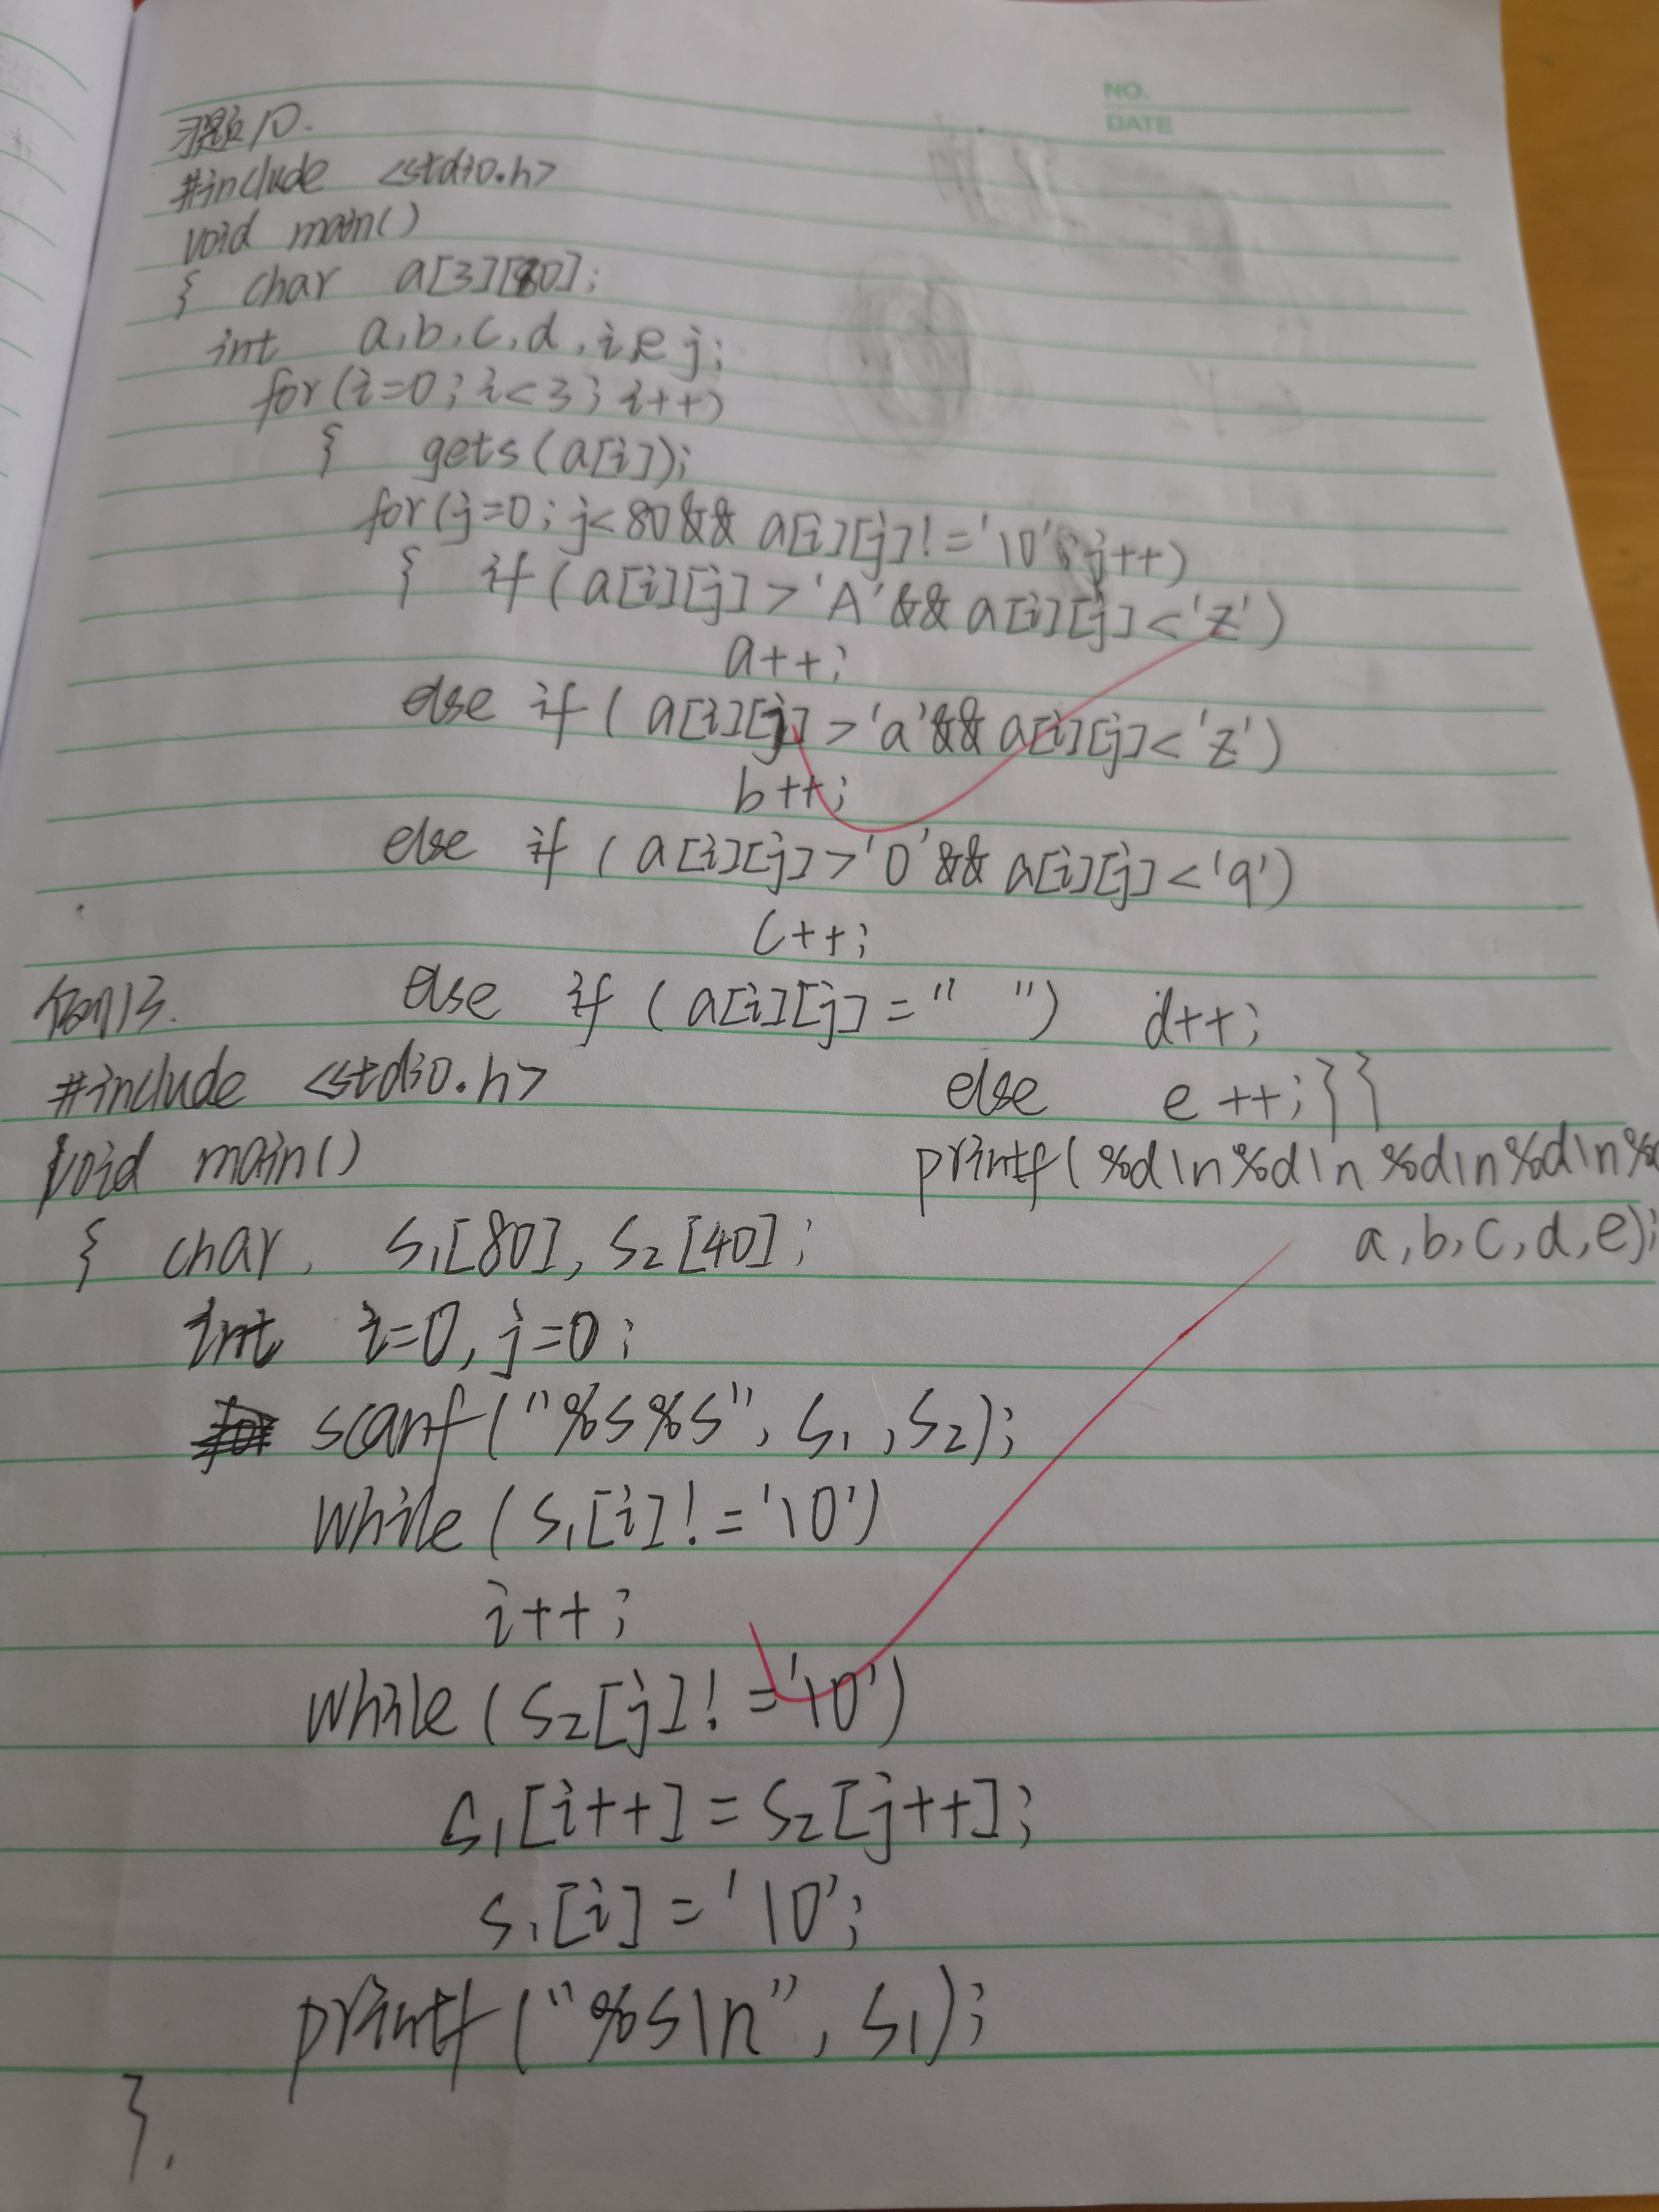 NO.
DATE
习题10.
#include <stdio.h>
void main()
{ char a[3][80];
int a,b,c,d,i,e j;
for(i=0; i<3; i++)
{ gets(a[i]);
for(j=0; j<80&& a[i][j]!='\0';j++)
{ if(a[i][j]>'A'&& a[i][j]<'Z')
a++;
else if(a[i][j]>'a'&& a[i][j]<'z')
b++;
else if(a[i][j]>'0'&& a[i][j]<'9')
c++;
else if(a[i][j]=" ") d++;
else e++;}}
printf(%d\n%d\n%d\n%d\n%
a,b,c,d,e);
例13.
#include <stdio.h>
void main()
{ char, s1[80], s2[40];
int i=0, j=0;
scanf("%s%s", s1, s2);
while(s1[i]!='\0')
i++;
while(s2[j]!='\0')
s1[i++]=s2[j++];
s1[i]='\0';
printf("%s\n", s1);
}.